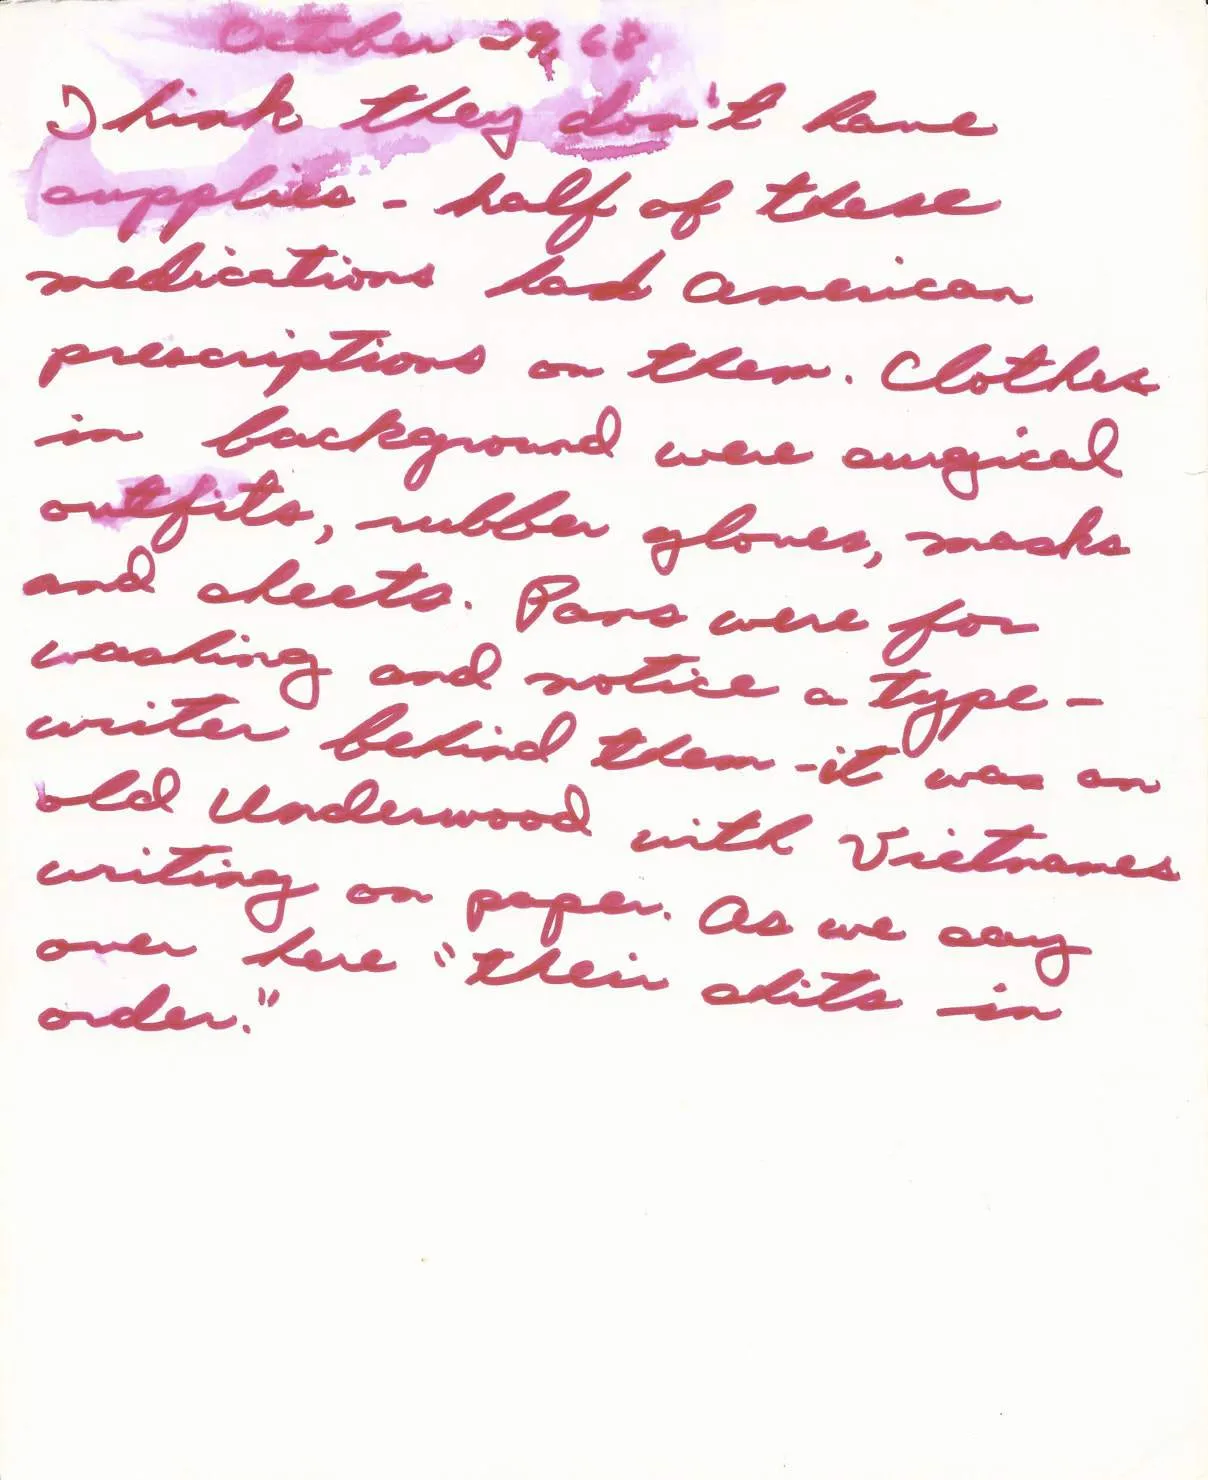 October 29, 68
Think they don't have
supplies - half of these
medications had American
prescriptions on them. Clothes
in background were surgical
outfits, rubber gloves, masks
and sheets. Pans were for
washing and notice a type-
writer behind them - it was an
old Underwood with Vietnames
writing on paper. As we say
over here "their shits in
order."